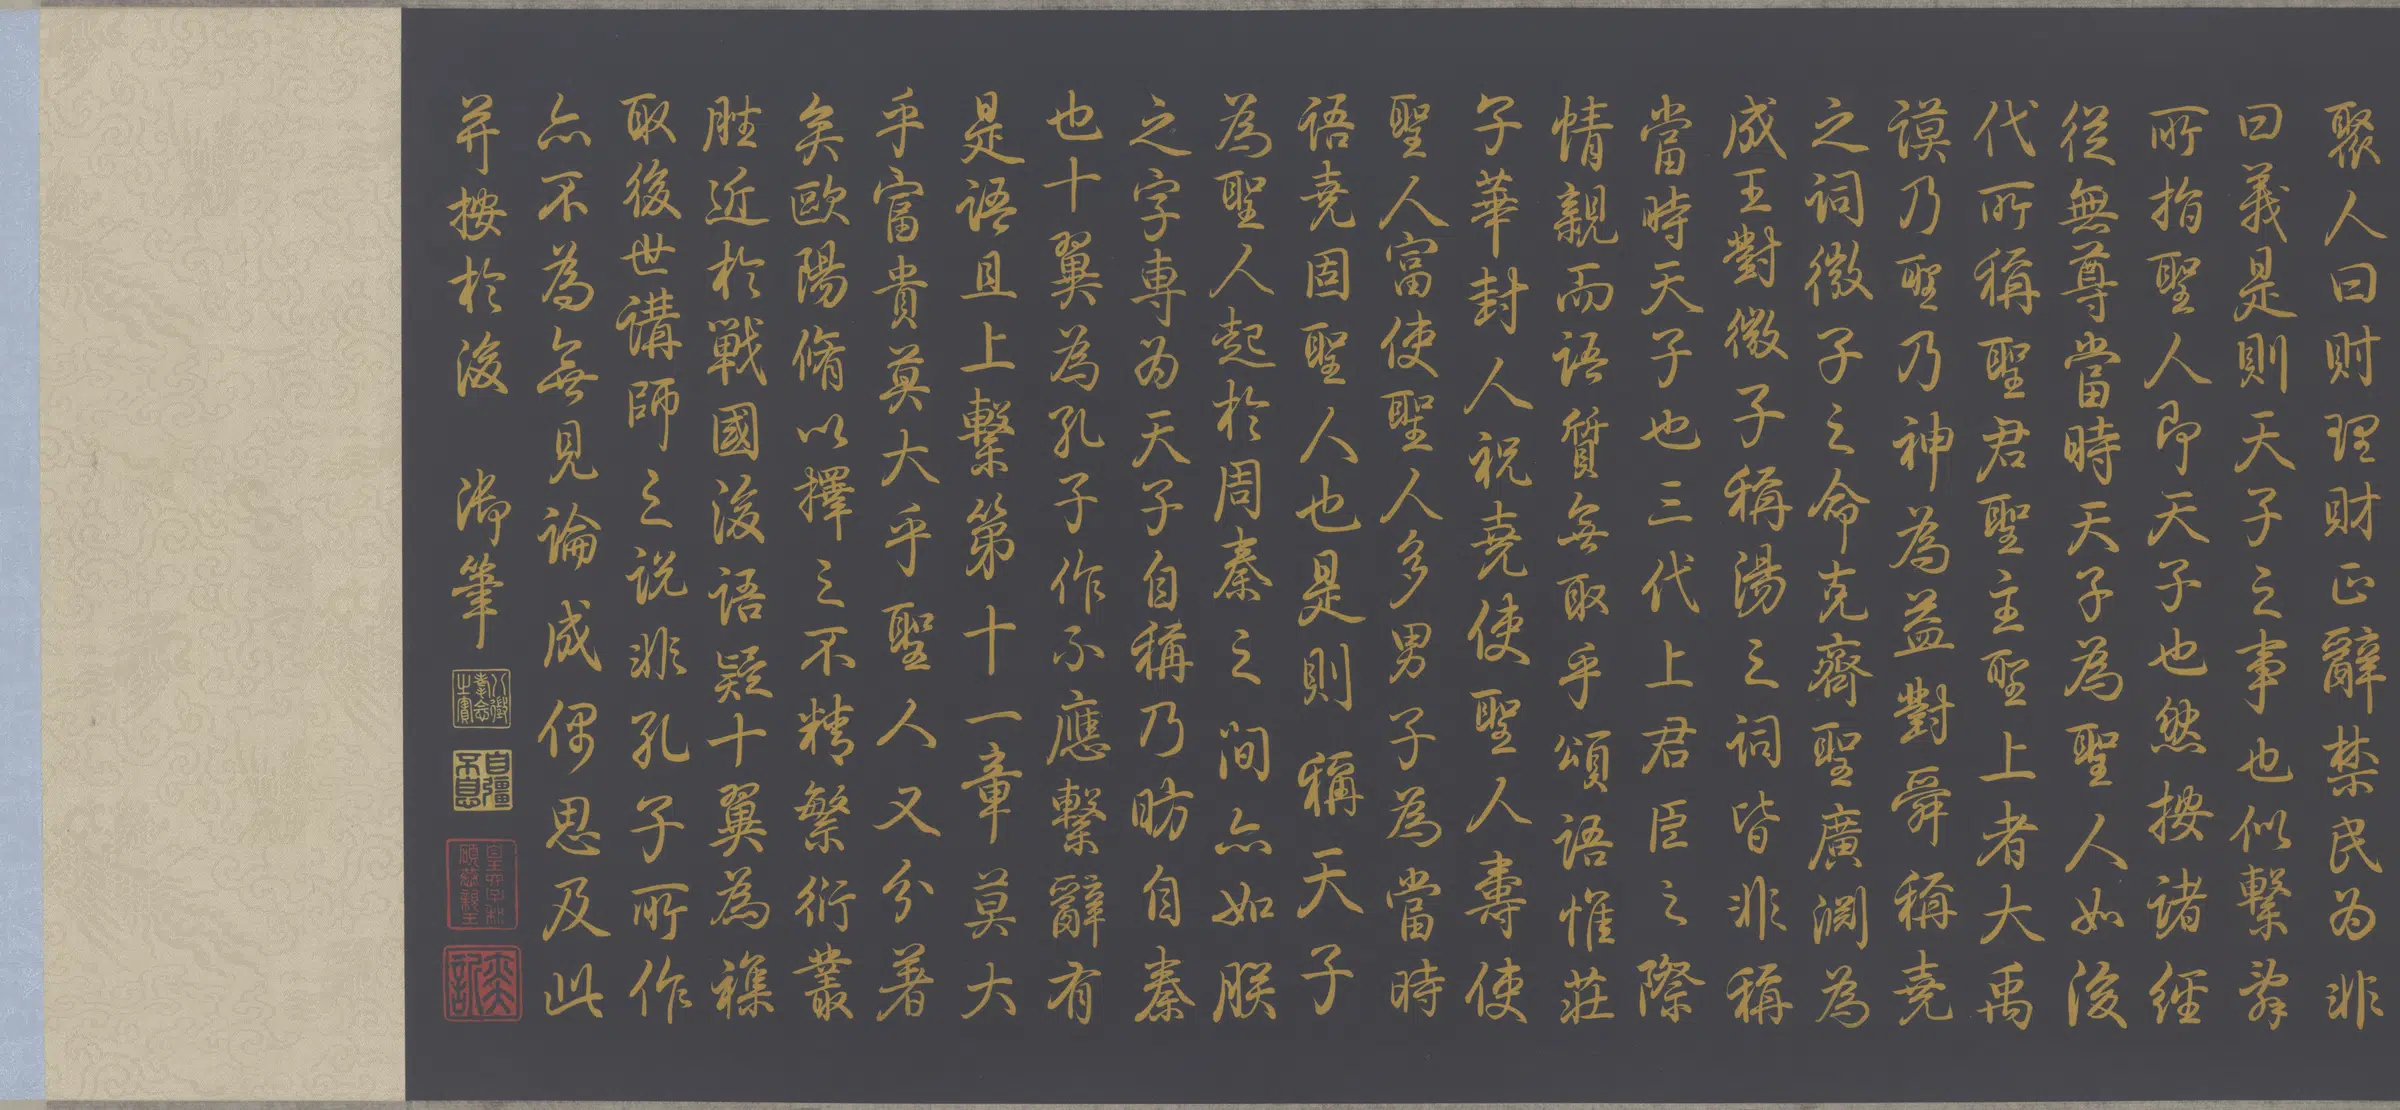 聚人曰財理財正辭禁民為非
曰義是則天子之事也似繫辭
所指聖人即天子也然按諸經
從無尊當時天子為聖人如後
代所稱聖君聖主聖上者大禹
謨乃聖乃神為益對舜稱堯
之詞微子之命克齊聖廣淵為
成王對微子稱湯之詞皆非稱
當時天子也三代上君臣之際
情親而語質無取乎頌語惟莊
子華封人祝堯使聖人壽使
聖人富使聖人多男子為當時
語堯固聖人也是則稱天子
為聖人起於周秦之間亦如朕
之字專為天子自稱乃昉自秦
也十翼為孔子作不應繫辭有
是語且上繫第十一章莫大
乎富貴莫大乎聖人又分著
矣歐陽脩以擇之不精繁衍叢
脞近於戰國後語疑十翼為襍
取後世講師之說非孔子所作
亦不為無見論成偶思及此
并按於後 御筆
八徵耄念之寶
自彊不息